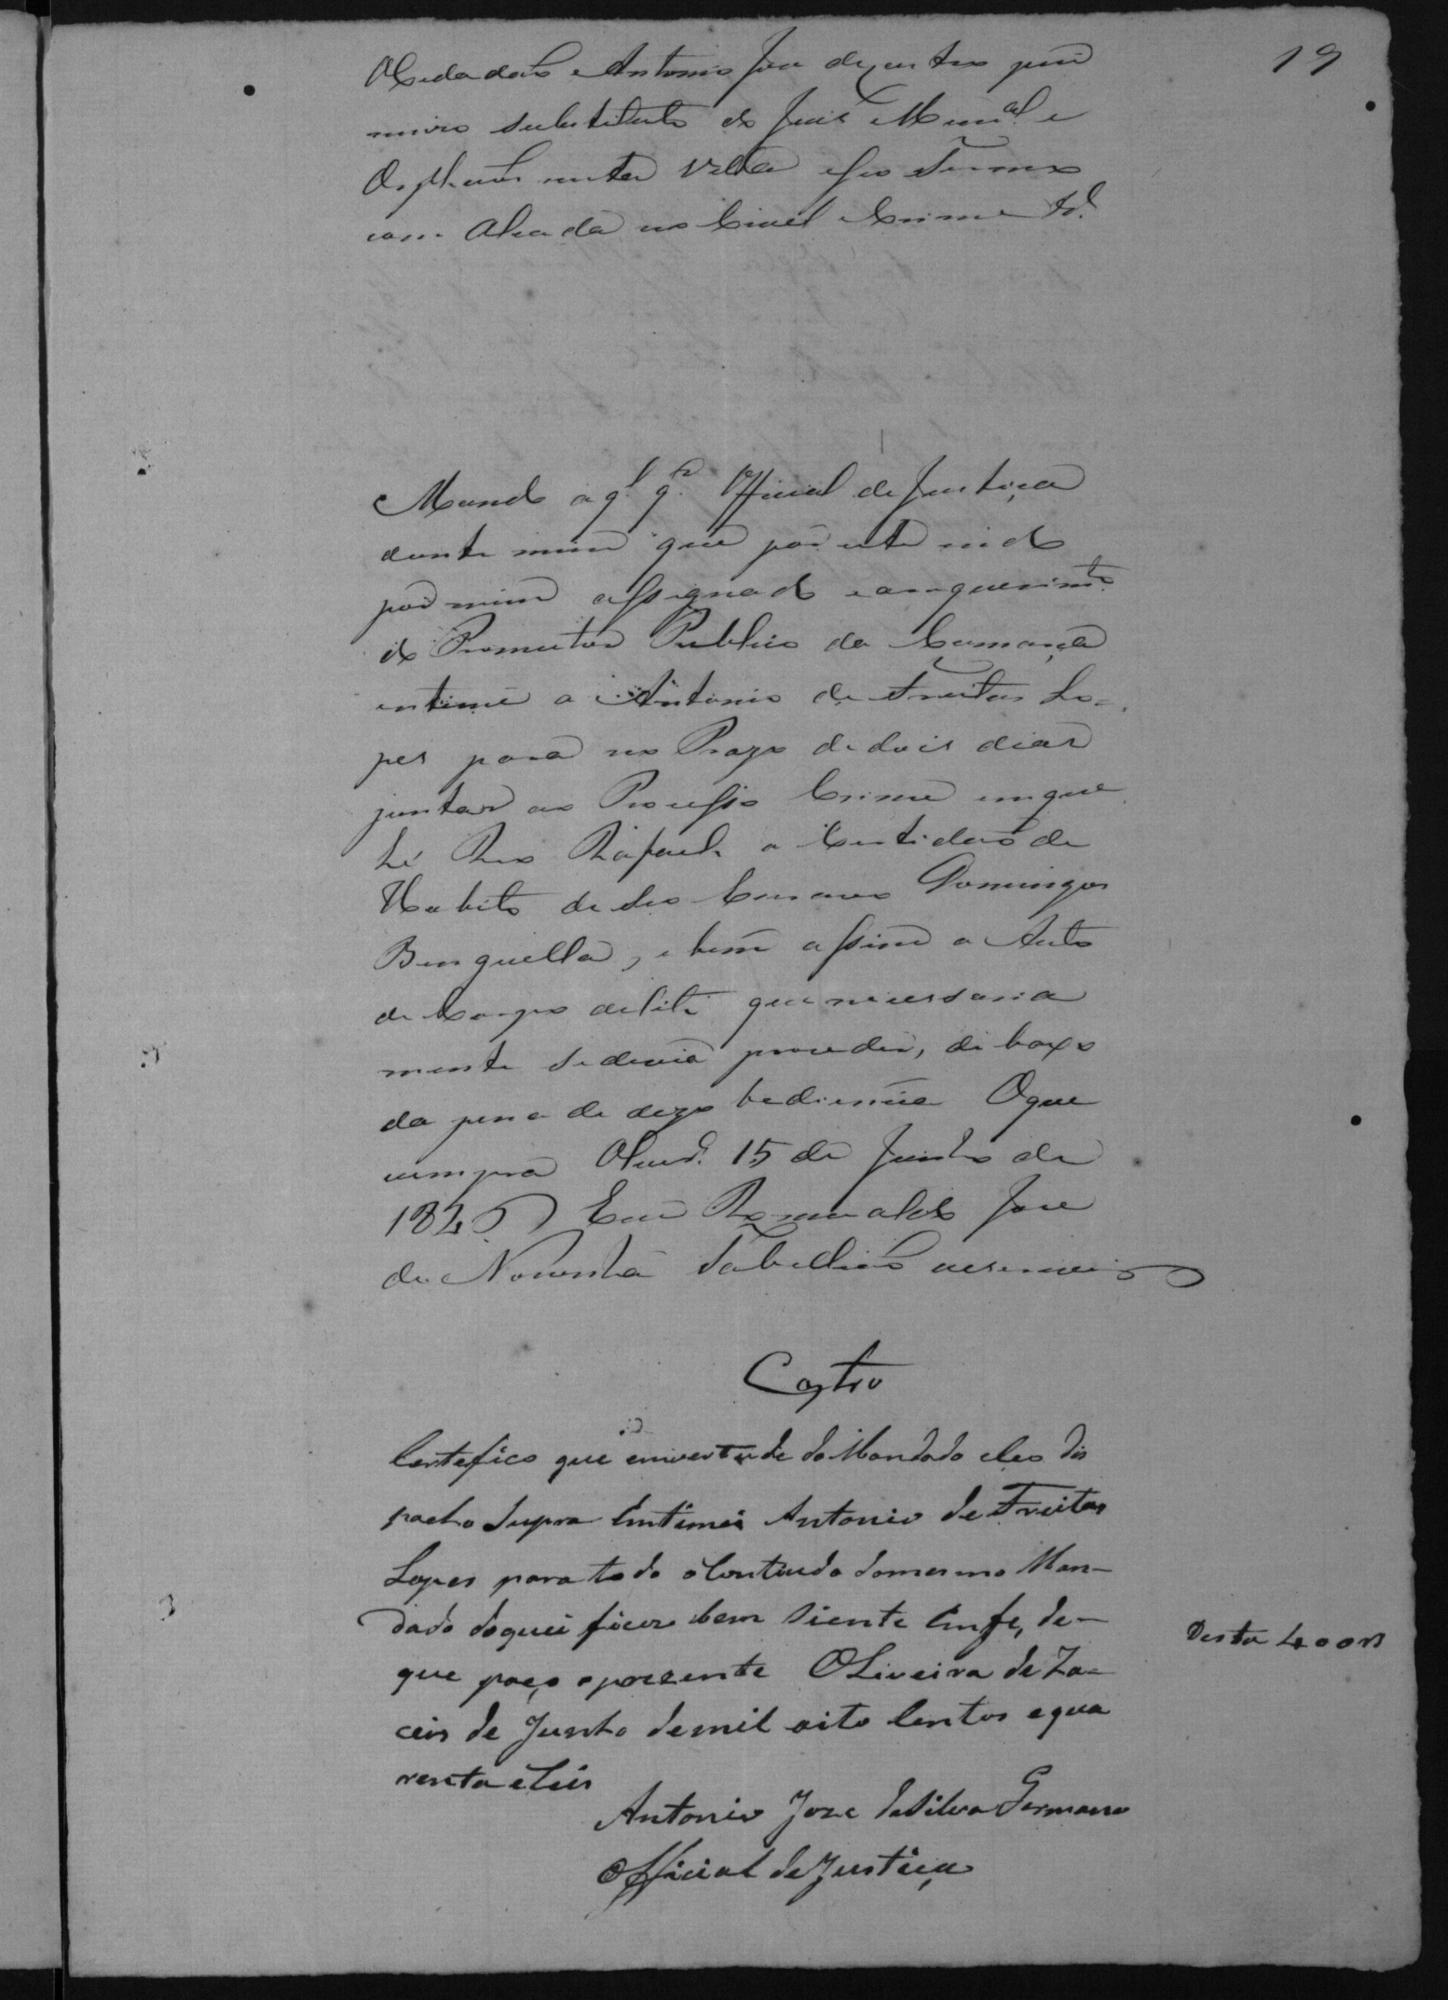 19
O Cidadaõ Antonio Joze de Castro pri
meiro substituto do Juis Mun.al e
Orphaõs nesta Villa e seo Termo
com Alcada no Civel e Crime &.
Mando a q.l q.r Official de Justiça
dante mim que por este md.o
por mim assignado e a requerim.to
do Promutor Publico da Comarca
intime a Antonio de Freitas Lo=
pes para no Prazo de dois dias
juntar ao Processo Crime em que
hé Reo Rafael a Certidaõ de
Habito de seo Escravo Domingos
Benguella, e bem assim o Auto
de Corpo delito que necessaria
mente se devia proceder, de baxo
da pena de dezo bediencia O que
cumpra Oliveir.a 15 de Junho de
1846 Eu Romualdo Joze
de Noronha Tabelliaõ escrevi
Castro
Certefico que em vertude do Mandado e seo dis
pacho Supra Entimei Antonio de Freitas
Lopes para todo o Contiudo do mesmo Man-
dado do que ficou bem Siente Em fe, de-
que paço a prezente Oliveira deza=
ceis de Junho de mil oito Centos e qua
renta e Seis
Desta 400 rs
Antonio Joze da Silva Germano
Official de Justiça